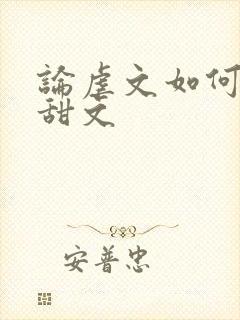 論虐文如何
甜文
安普忠